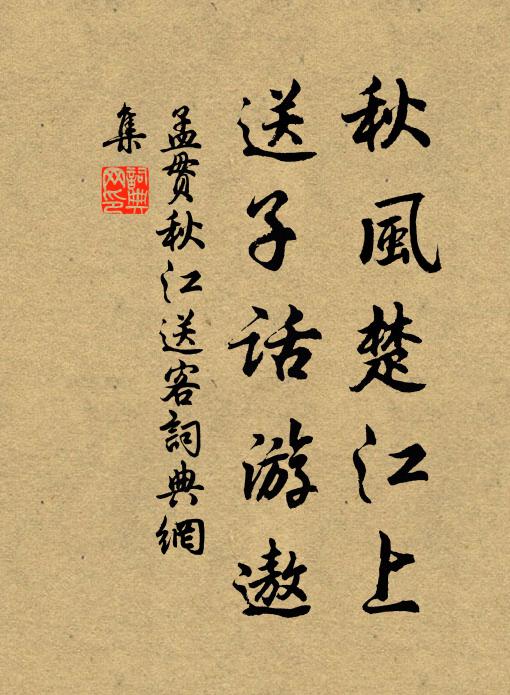 秋風楚江上
送子話游遨
孟貫秋江送客詞典網
集
詞典
网印